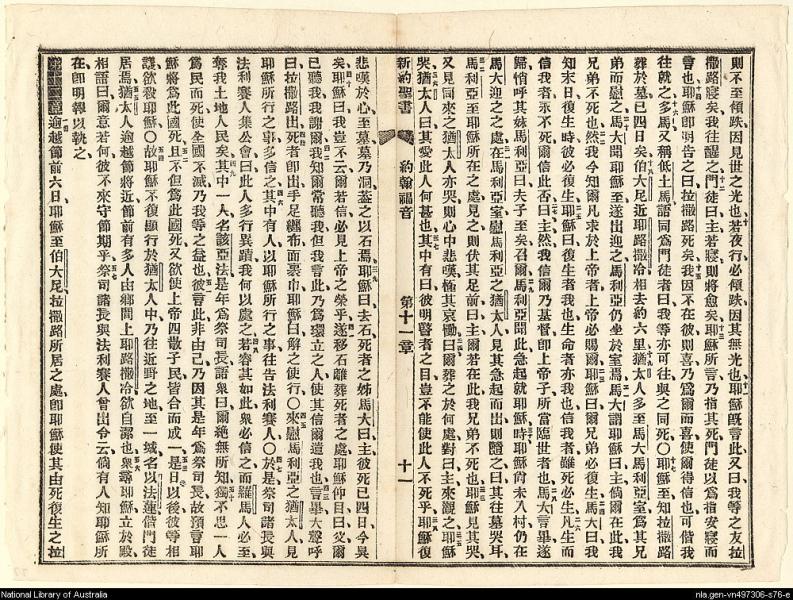 則不至傾跌因見世之光也若夜行必傾跌因其無光也耶穌旣言此又曰我等之友拉
撒路寢矣我往醒之門徒曰主若寢則將愈矣耶穌所言乃指其死門徒以爲指安寢而
言也耶穌卽明告之曰拉撒路死矣我因不在彼則喜乃爲爾而喜使爾得信也可偕我
往就之多馬又稱低土馬語同爲門徒者曰我等亦可往與之同死〇耶穌至知拉撒路
葬於墓已四日矣伯大尼近耶路撒冷相去約六里猶太人多至馬大馬利亞室爲其兄
弟而慰之馬大聞耶穌至遂出迎之馬利亞仍坐於室焉馬大謂耶穌曰主倘爾在此我
兄弟不死也然我今知爾凡求於上帝者上帝必賜爾耶穌曰爾兄弟必復生馬大曰我
知末日復生時彼必復生耶穌曰復生者我也生命者亦我也信我者雖死必生凡生而
信我者永不死爾信此否曰主然我信爾乃基督卽上帝子所當臨世者也馬大言畢遂
歸悄呼其妹馬利亞曰夫子至矣召爾馬利亞聞此急起就耶穌時耶穌尙未入村仍在
馬大迎之之處在馬利亞室慰馬利亞之猶太人見其急起而出則隨之曰其往墓哭耳
馬利亞至耶穌所在之處見之則伏其足前曰主爾若在此我兄弟不死也耶穌見其哭
又見同來之猶太人亦哭則心中悲嘆極其哀慟曰爾葬之於何處對曰主來觀之耶穌
哭猶太人曰其愛此人何甚也其中有曰彼明瞽者之目豈不能使此人不死乎耶穌復
新約聖書 約翰福音 第十一章 十一
悲嘆於心至墓墓乃洞蓋之以石焉耶穌曰去石死者之姊馬大曰主彼死已四日今臭
矣耶穌曰我豈不云爾若信必見上帝之榮乎遂移石離葬死者之處耶穌仰目曰父爾
已聽我我謝爾我知爾常聽我但我言此乃爲環立之人使其信爾遣我也言畢大聲呼
曰拉撒路出死者卽出手足纏布而裹巾耶穌曰解之使行〇來慰馬利亞之猶太人見
耶穌所行之事多信之其中有人以耶穌所行之事往告法利賽人〇於是祭司諸長與
法利賽人集公會曰此人多行異蹟我何以處之若容其如此衆必信之而羅馬人必至
奪我土地人民矣其中一人名該亞法是年爲祭司長語衆曰爾絕無所知獨不思一人
爲民而死使全國不滅乃我等之益也彼言此非由己乃因其是年爲祭司長故預言耶
穌將爲此國死且不但爲此國死又欲使上帝四散子民皆合而成一是日以後彼等相
議欲殺耶穌〇故耶穌不復顯行於猶太人中乃往近野之地至一城名以法蓮偕門徒
居焉猶太人逾越節將近節前有多人由鄉間上耶路撒冷欲自潔也衆尋耶穌立於殿
相語曰爾意若何彼不來守節期乎祭司諸長與法利賽人曾出令云倘有人知耶穌所
在卽明報以執之
逾越節前六日耶穌至伯大尼拉撒路所居之處卽耶穌使其由死復生之拉
National Library of Australia
nla.gen-vn497306-s76-e